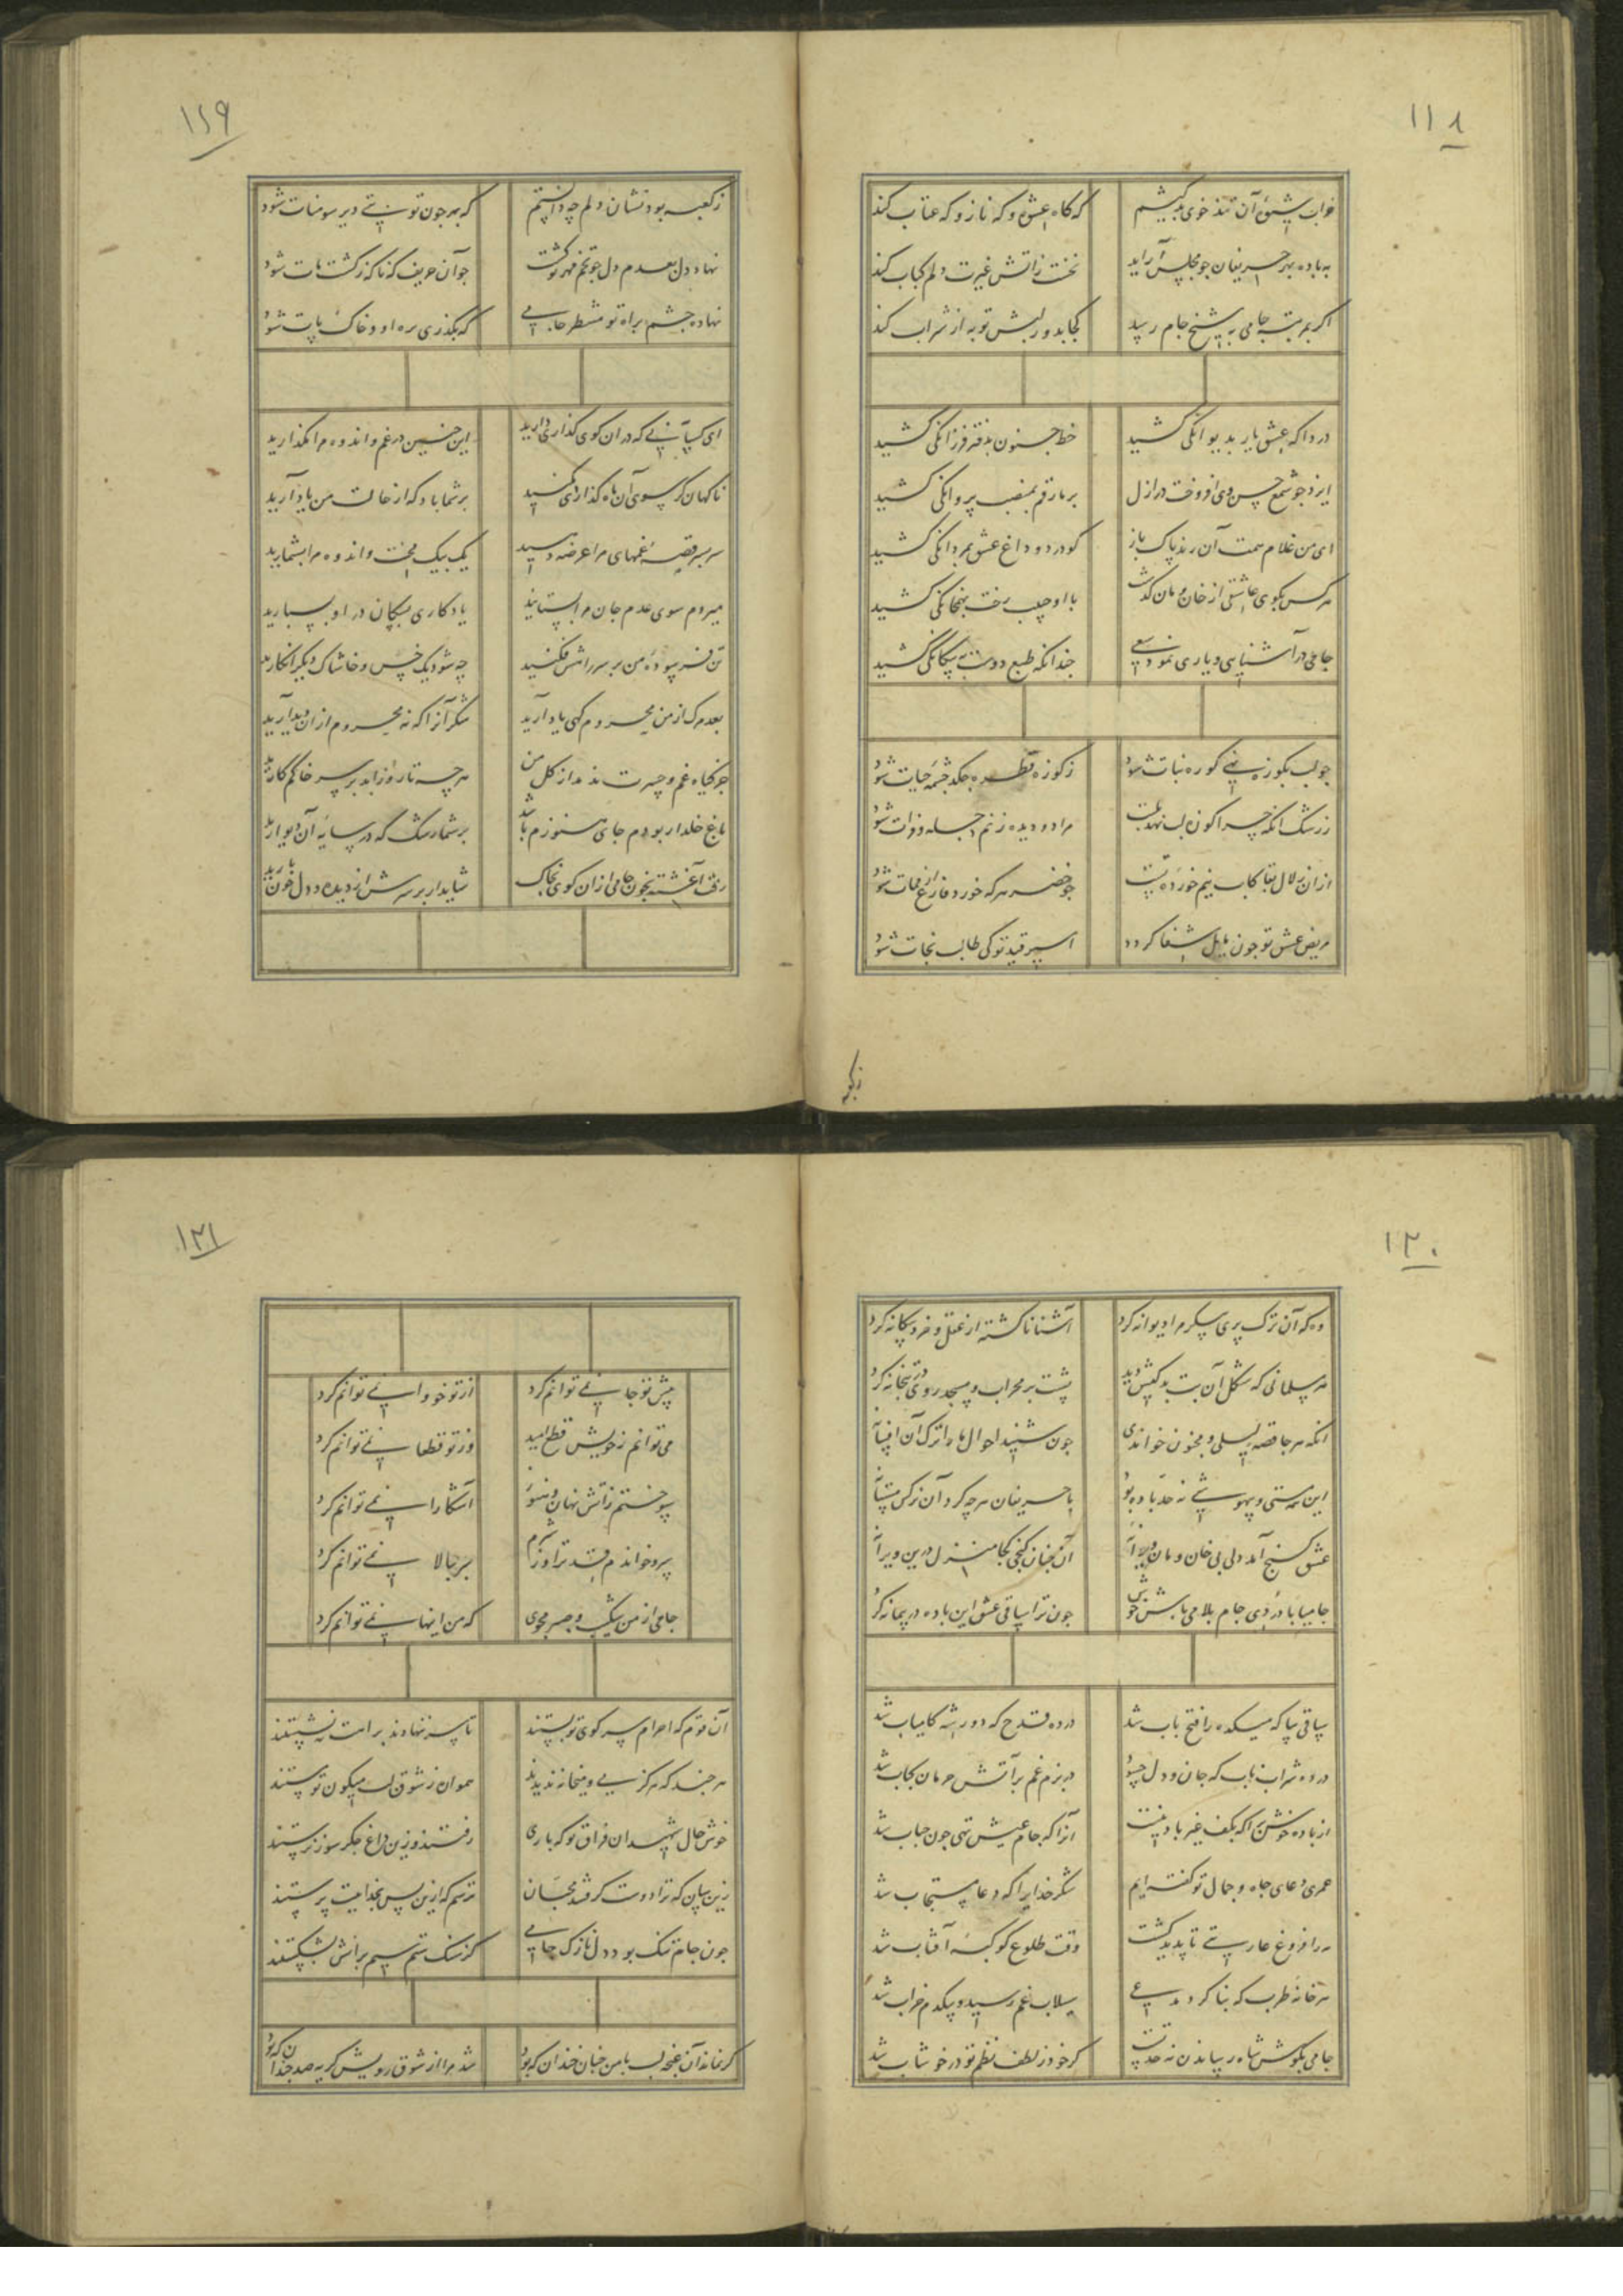 ۱۱۸
خراب شیوه آن تند خوی بدکیشم که گاه عشوه و که ناز و که عتاب کند
به باده بهر حریفان جو مجلس آراید نخست زاتش غیرت دلم کباب کند
اکر بمرتبه جامی به شیخ جام رسید کجا بدور لبش توبه از شراب کند
دردا که عشق یار بدیوانکی کشید خط جنون بدفتر فرزانکی کشید
ایزد جو شمع حسن وی افروخت در ازل بر ما رقم بمنصب پروانکی کشید
ای من غلام همت آن رند پاک باز کو درد و داغ عشق بمردانکی کشید
هر کس بکوی عاشقی از خان و مان کذشت با او جیب رخت بهمخانکی کشید
جامی در آشنایی و یاری نمود سعی جندانکه طبع دوست به بیکانکی کشید
جو لب بکوزه نهی کوزه نبات شود ز کوزه قطره جکد جشمه حیات شود
ز رشک انکه جرا کوزه لب نهد بلبت مرا دو دیده ز نم دجله و فرات شود
از ان زلال بقا کاب نیم خورده تست جو خضر هر که خورد فارغ از ممات شود
مریض عشق تو جون مایل شفا کردد اسیر قید تو کی طالب نجات شود
ز کعبه
۱۱۹
ز کعبه بود نشان دلم چه دانستم که بهر جون تو بتی دیر سومنات شود
نهاد دل بعدم دل جو تخم مهر تو کشت جو آن حریف که ناکه ز کشت مات شود
نهاده جشم براه تو منتظر جامی که بکذری بره او و خاک پات شود
ای کسانی که در ان کوی کذاری دارید این جنین در غم و اندوه مرا مکذارید
ناکهان کر بسوی آن ماه کذاری کنید بر شما باد که از حالت من یاد آرید
سر بسر قصه غمهای مرا عرضه دهید یک بیک محنت و اندوه مرا بشمارید
میروم سوی عدم جان مرا بستانید یادکاری بسکان در او بسپارید
تن فرسوده من بر سر راهش فکنید چه شود یک خس و خاشاک دیکر انکارید
بعد مرک از من محروم کهی یاد آرید شکر آنرا که نه محروم از ان دیدارید
جز کیاه غم و حسرت ندمد از کل من هر چه تا روز ابد بر سر خاکم کارید
باغ خلد ار بودم جای هنوزم باشد بر شما رشک که در سایه آن دیوارید
رفت آغشته بخون جامی از ان کوی بخاک شاید ار بر سرش از دیده و دل خون بارید
۱۲۰
وه که آن ترک پری پیکر مرا دیوانه کرد آشنا ناکشته از عقل و خرد بیکانه کرد
هر مسلمانی که شکل آن بت بدکیش دید پشت بر محراب و مسجد روی در بتخانه کرد
انکه هر جا قصه لیلی و مجنون خواندی جون شنید احوال ما را ترک آن افسانه
این همه مستی و بیهوشی نه حد باده بود با حریفان هر چه کرد آن نرکس مستانه
عشق کنج آمد ولی بی خان و مان ویرانه آن جنان کنجی کجا منزل درین ویرانه
جامیا با دردی جام بلا می باش خوش جون ترا ساقی عشق این باده در پیمانه کرد
ساقی بیا که میکده را فتح باب شد در ده قدح که دور شه کامیاب شد
در ده شراب ناب که جان و دل حسود در بزم غم بر آتش حرمان کباب شد
از باده خوش برا که بکف غیر باد نیست آنرا که جام عیش تهی جون حباب شد
عمری دعای جاه و جمال تو کفته ایم شکر خدایرا که دعا مستجاب شد
مه را فروغ عاریتی ناپدید کشت وقت طلوع کوکبه آفتاب شد
هر خانه طرب که بنا کرد مدعی سیلاب غم رسید و بیکدم خراب شد
جامی بکوش شاه رساندن نه حد تست کر خود ز لطف نظم تو در خوشاب شد
۱۲۱
پیش تو جا نمی توانم کرد از تو خود وا نمی توانم کرد
می توانم ز خویش قطع امید وز تو قطعا نمی توانم کرد
سوختم زاتش نهان و هنوز آشکارا نمی توانم کرد
سرو خواندم قد ترا وز شرم سر ببالا نمی توانم کرد
جامی از من شکیب و صبر مجوی که من اینها نمی توانم کرد
آن قوم که احرام سر کوی تو بستند تا سر ننهادند براهت ننشستند
هر جند که هرکز می و میخانه ندیدند هموار ز شوق لب میکون تو مستند
خوش حال شهیدان فراق تو که باری رفتند و زین داغ جکر سوز برستند
زین سان که ترا دوست کرفتند محبان ترسم که ازین پس بخداییت پرستند
جون جام تنک بود دل نازک جامی کز سنک ستم سیم برانش بشکستند
کر نماند آن غنچه لب با من جنان خندان که بود شد مرا از شوق رویش کریه صد جندان که بود